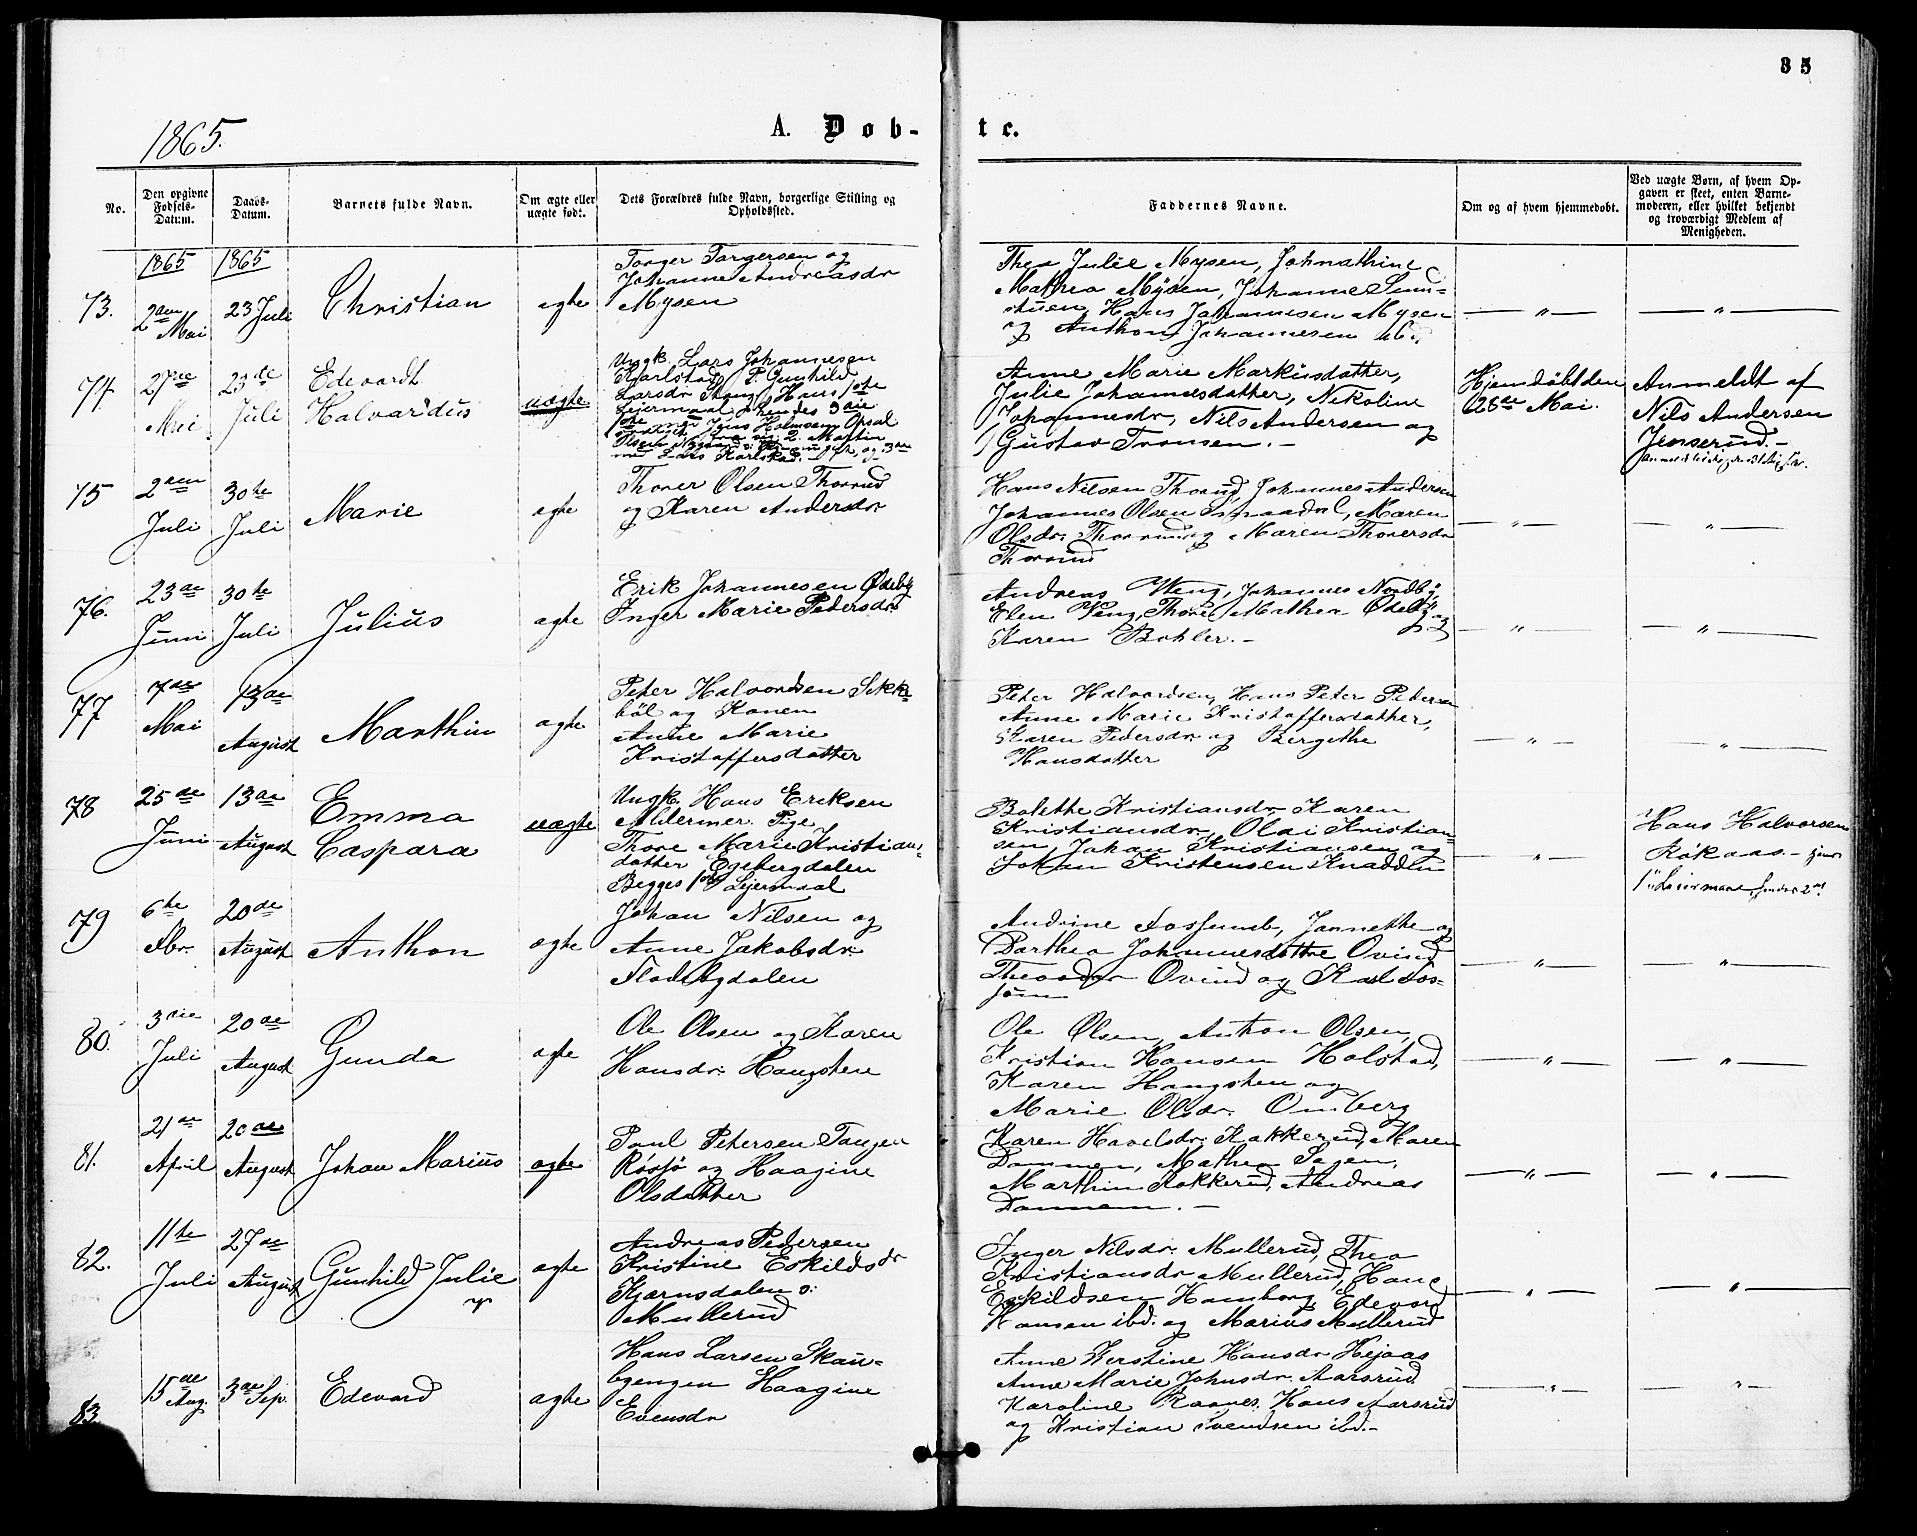 35
1865.
A. Døb-
te.
No.
Den opgivne Fødsels-Datum.
Daabs-Datum.
Barnets fulde Navn.
Om ægte eller uægte født.
Dets Forældres fulde Navn, borgerlige Stilling og Opholdssted.
Faddernes Navne.
Om og af hvem hjemmedøbt.
Ved uægte Børn, af hvem Opgaven er skeet, enten Barnemoderen, eller hvilket bekjendt og troværdigt Medlem af Menigheden.
1865 1865
73. 2den Mai 23 Juli Christian ægte
Torger Torgersen og
Johanne Andreasdr
Mysen
Thea Julie Mysen, Johnathine
Mathea Mysen, Johanne Sund-
stuen, Hans Johannesen Mysen
og Anthon Johannesen ibd.
— " — — " —
74. 27de Mai 23de Juli Edevardt Halvardus uægte
Ungk. Lars Johannesen
Karlstad, P. Gunhild
Larsdr Hans 1ste
Leiermaal, hendes 3die
Opsal
2. Martin
Olsen
Lars Karlstad.
Anne Marie Markusdatter,
Julie Johannesdatter, Nikoline
Johannesdr, Nils Andersen og
Gustav Tronsen. -
Hjemdøbt den
28de Mai.
Anmeldt af
Nils Andersen
Jenserud. -
75 2den Juli 30te Juli Marie ægte
Thorer Olsen Thorrud
og Karen Andersdr
Hans Nilsen Thorud, Johannes Andersen
Johannes Olsen Smaadal, Maren
Olsdr. Thorrud og Maren Thorersdr
Thorrud
— " — — " —
76. 23de Juni 30te Juli Julius ægte
Erik Johannesen Ødeby
Inger Marie Pedersdr
Andreas Weng, Johannes Nordby,
Elen Weng, Thore Mathea Ødeby og
Karen Bøhler. -
— " — — " —
77 7de Mai 13de August Marthin ægte
Peter Halvordsen Sekke-
bøl og Konen
Anne Marie
Kristoffersdatter
Peter Halvordsen, Hans Peter Pedersen
Anne Marie Kristoffersdatter,
Karen Pedersdr og Bergithe
Hansdatter
— " — — " —
78 25de Juni 13de August Emma Caspara uægte
Ungk. Hans Eriksen
Mildermer. Pige
Thore Marie Kristians-
datter Egebergdalen
Begges 1ste Leiermaal
Bolette Kristiansdr, Karen
Kristiansdr, Olai Kristian-
sen, Johan Kristiansen og
Johan Kristensen Knadden
— " —
Hans Halvorsen
Røkaas. -
79 6te Fbr. 20de August Anthon ægte
Johan Nilsen og
Anne Jakobsdr.
Flodebgdalen
Andrine Fossumb, Jannette og
Dorthea Johannesdøttre Ovind
Theodor Ovind og Karl Fos-
sum
— " — — " —
80. 3die Juli 20de August Gunda ægte
Ole Olsen og Karen
Hansdr: Haugsten
Ole Olsen, Anthon Olsen,
Kristian Hansen Holstad,
Karen Haugsten og
Marie Olsdr. Omberg
— " — — " —
81. 21de April 20de August Johan Marius ægte
Paul Petersen Tangen
Røssjø og Haagine
Olsdatter
Karen Havelsdr. Kokkerud, Maren
Dammen, Mathea Sagen,
Marthin Kokkerud, Andreas
Dammen. -
— " — — " —
82. 11te Juli 27de August Gunhild Julie ægte
Andreas Pedersen
Kristine Eskildsdr
Kjærnsdalen o:
Mullerud
Inger Nilsdr. Mullerud, Thea
Kristiansdr Mullerud, Hans
Eskildsen Hamborg, Edevard
Hansen ibd. og Marius Mullerud
— " — — " —
83. 15de Aug. 3de Sep. Edevard ægte
Hans Larsen Skau-
bgengen Haagine
Evensdr
Anne Kerstine Hansdr Hejaas
Anne Marie Johnsdr. Aarsrud
Karoline Raanes, Hans Aarsrud
og Kristian Svendsen ibd. -
— " — — " —